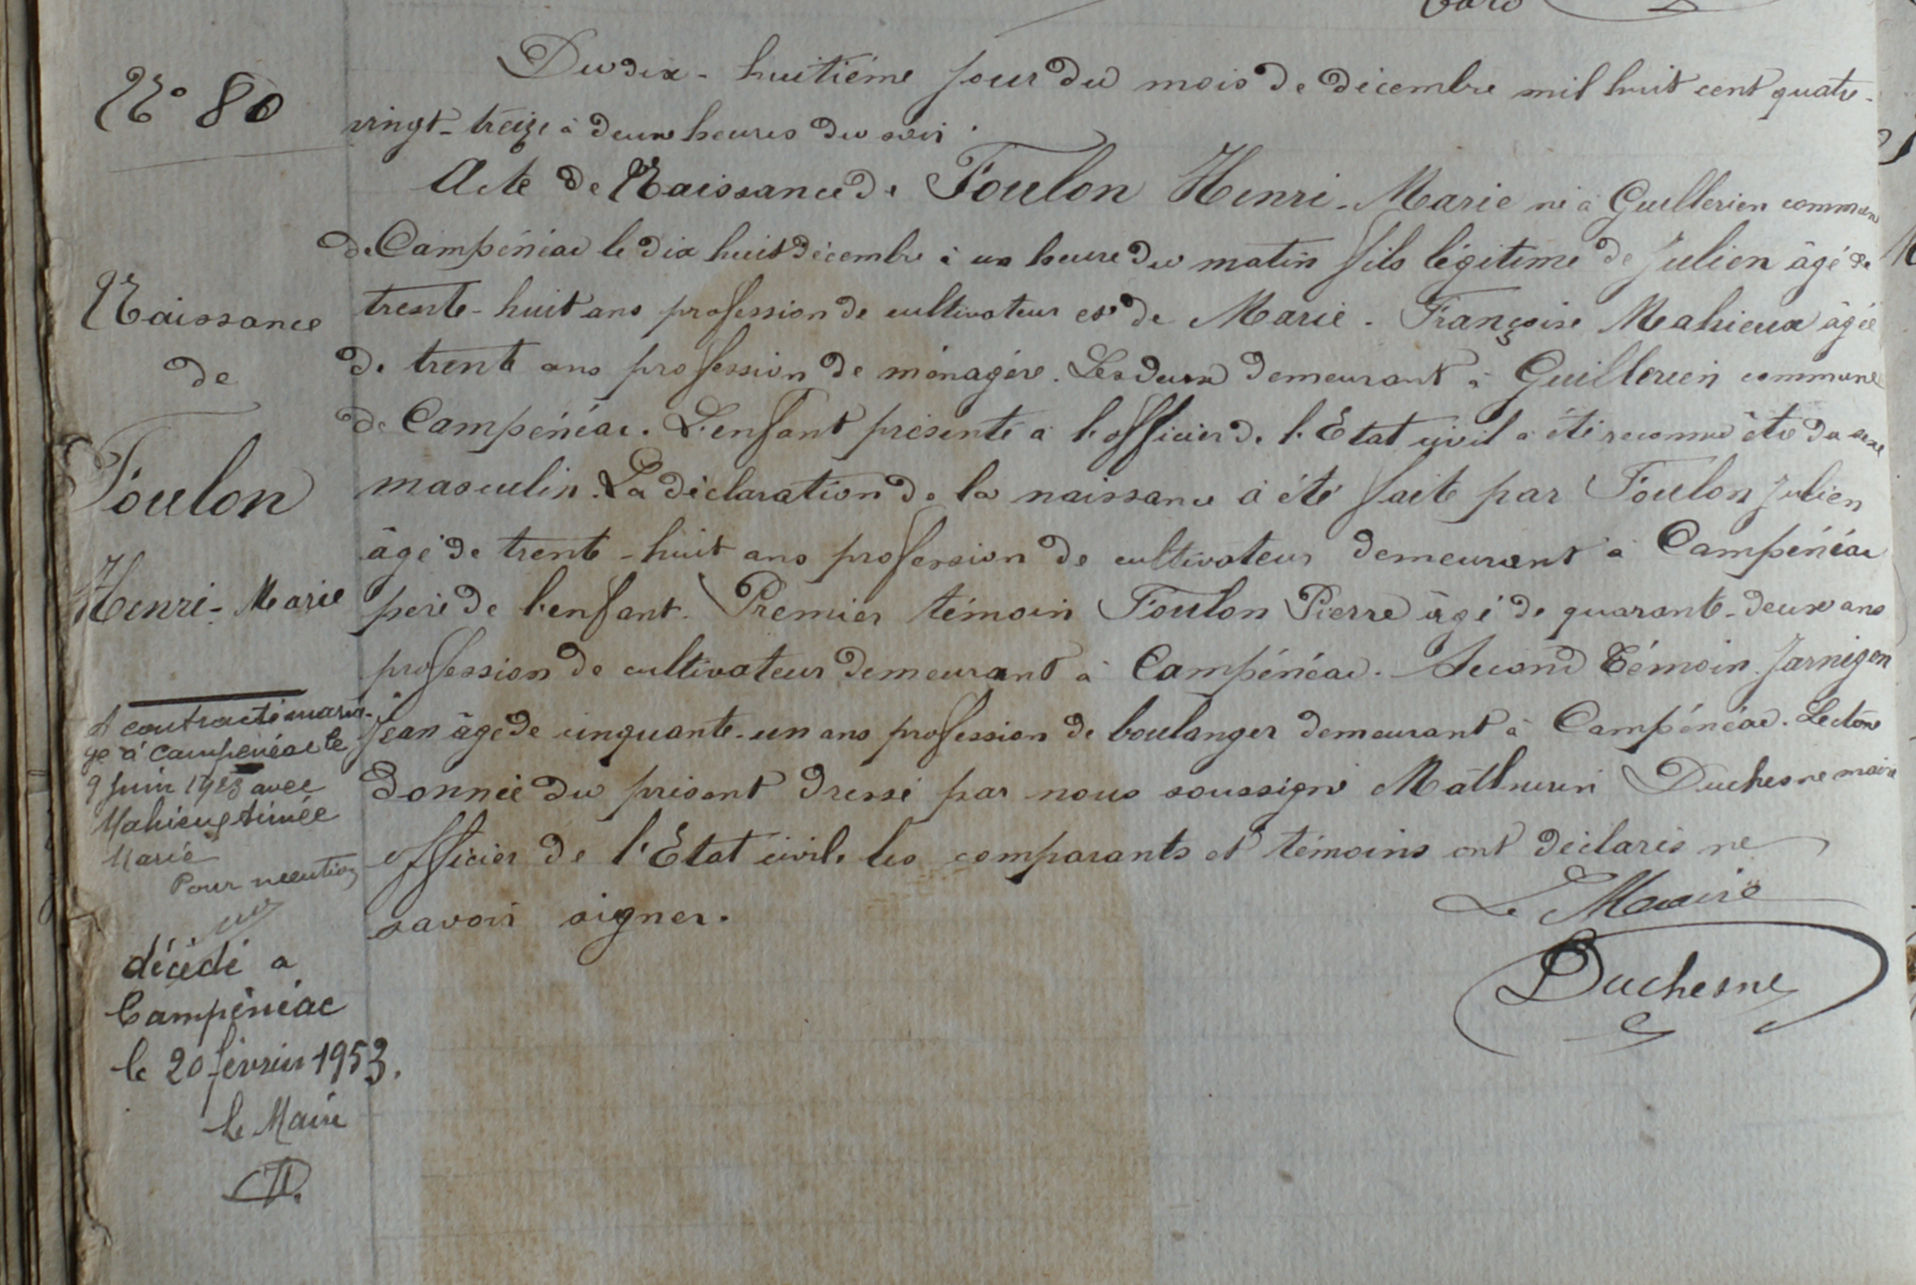 N° 80
Naissance
de
Foulon
Henri-Marie
A contracté maria-
ge à Campénéac le
9 Juin 1923 avec
Mahieux Aimée
Marie
Pour mention
décédé a
Campénéac
le 20 février 1953.
Le Maire
Du dix-huitième jour du mois de décembre mil huit cent quatre-
vingt-treize à deux heures du soir.
Acte de Naissance de Foulon Henri-Marie né à Guillerien commune
de Campénéac le dix huit décembre à un heure du matin fils légitime de Julien âgé de
trente-huit ans profession de cultivateur et de Marie-Françoise Mahieux âgée
de trente ans profession de ménagère. Les deux demeurant à Guillerien commune
de Campénéac. L'enfant présenté à l'officier de l'Etat civil a été reconnu être du sexe
masculin. La déclaration de la naissance a été faite par Foulon Julien
âgé de trente-huit ans profession de cultivateur demeurant à Campénéac
père de l'enfant. Premier témoin Foulon Pierre âgé de quarante-deux ans
profession de cultivateur demeurant à Campénéac. Second Témoin Jarnigon
Jean âgé de cinquante-un ans profession de boulanger demeurant à Campénéac. Lecture
donnée du présent dressé par nous soussigné Mathurin Duchesne maire
officier de l'Etat civil. les comparants et témoins ont déclarés ne
savoir signer.
Le Maire
Duchesne